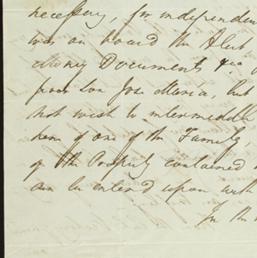 necessary, for independen
was on board the Alert
Money Documents &ca
from Don Jose Maria. but
not wish to intermeddle
hem of one of the Family,
of the Property contained
can be enter'd upon with
In the